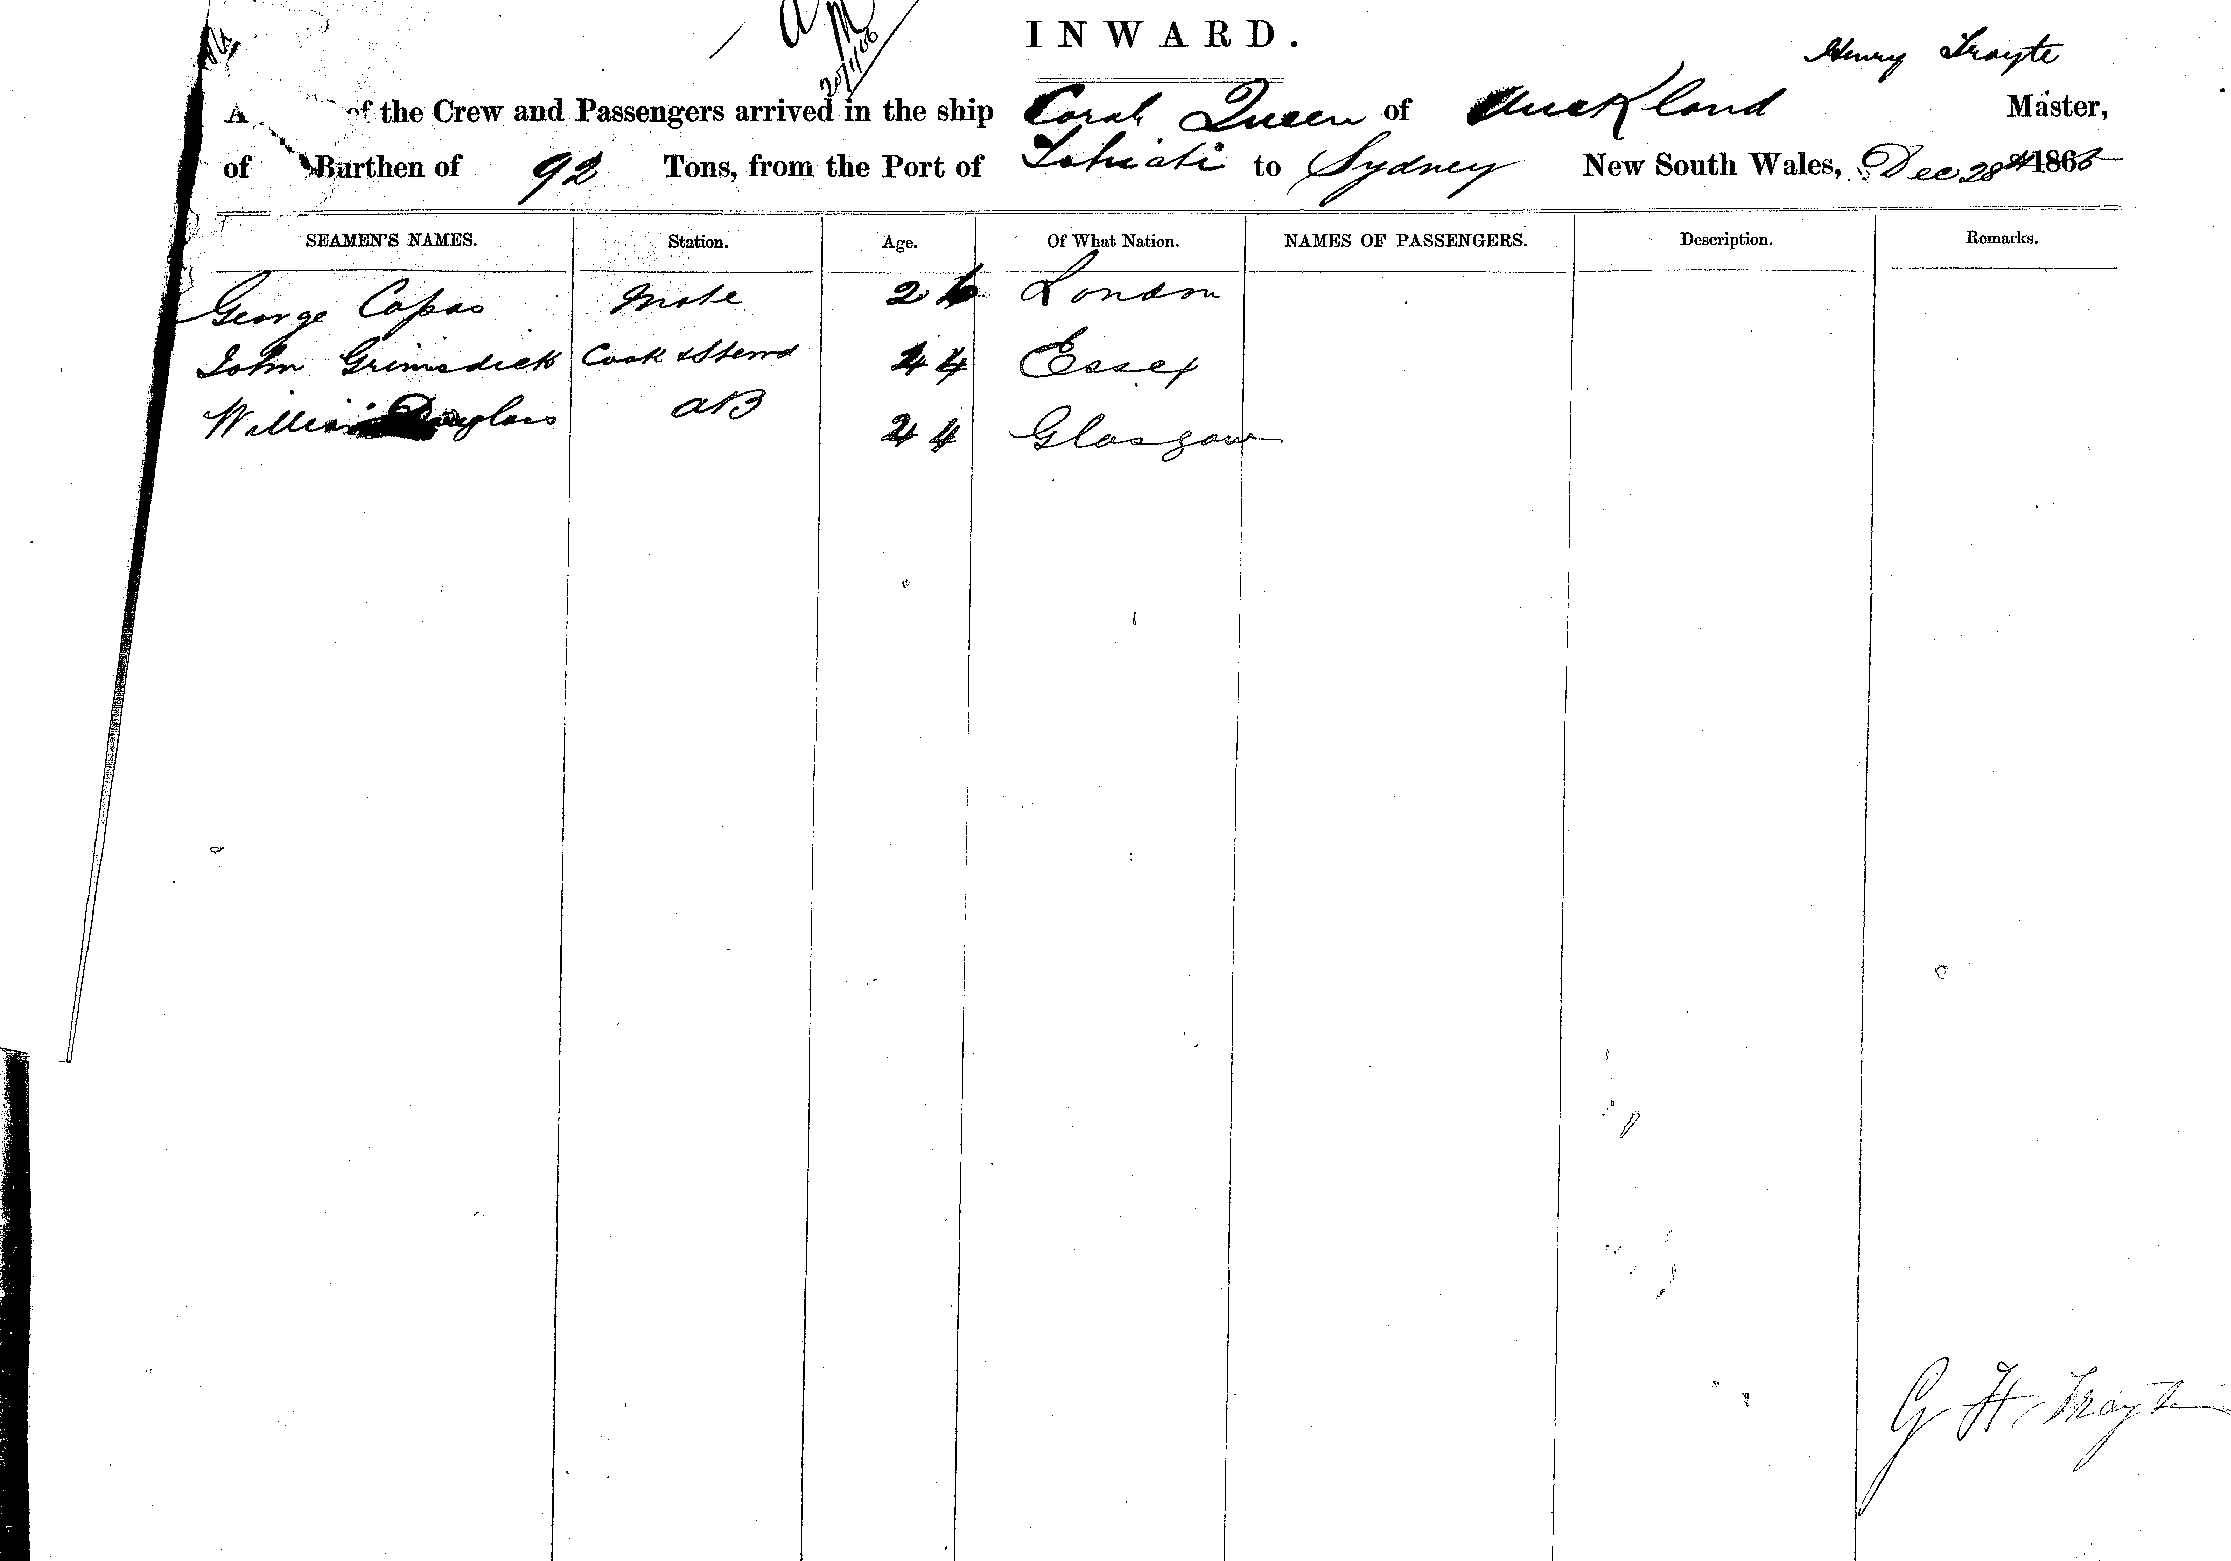 INWARD.
Henry Trayte
A of the Crew and Passengers arrived in the ship Corah Queen of Auckland Master,
of Burthen of 92 Tons, from the Port of Tahiati to Sydney New South Wales, Dec 28th 1866
SEAMEN'S NAMES. Station. Age. Of What Nation. NAMES OF PASSENGERS. Description. Remarks.
George Copas Mate 26 London
John Grimsdick Cook & Stewd 44 Essex
William Douglass AB 24 Glasgow
G H Trayte